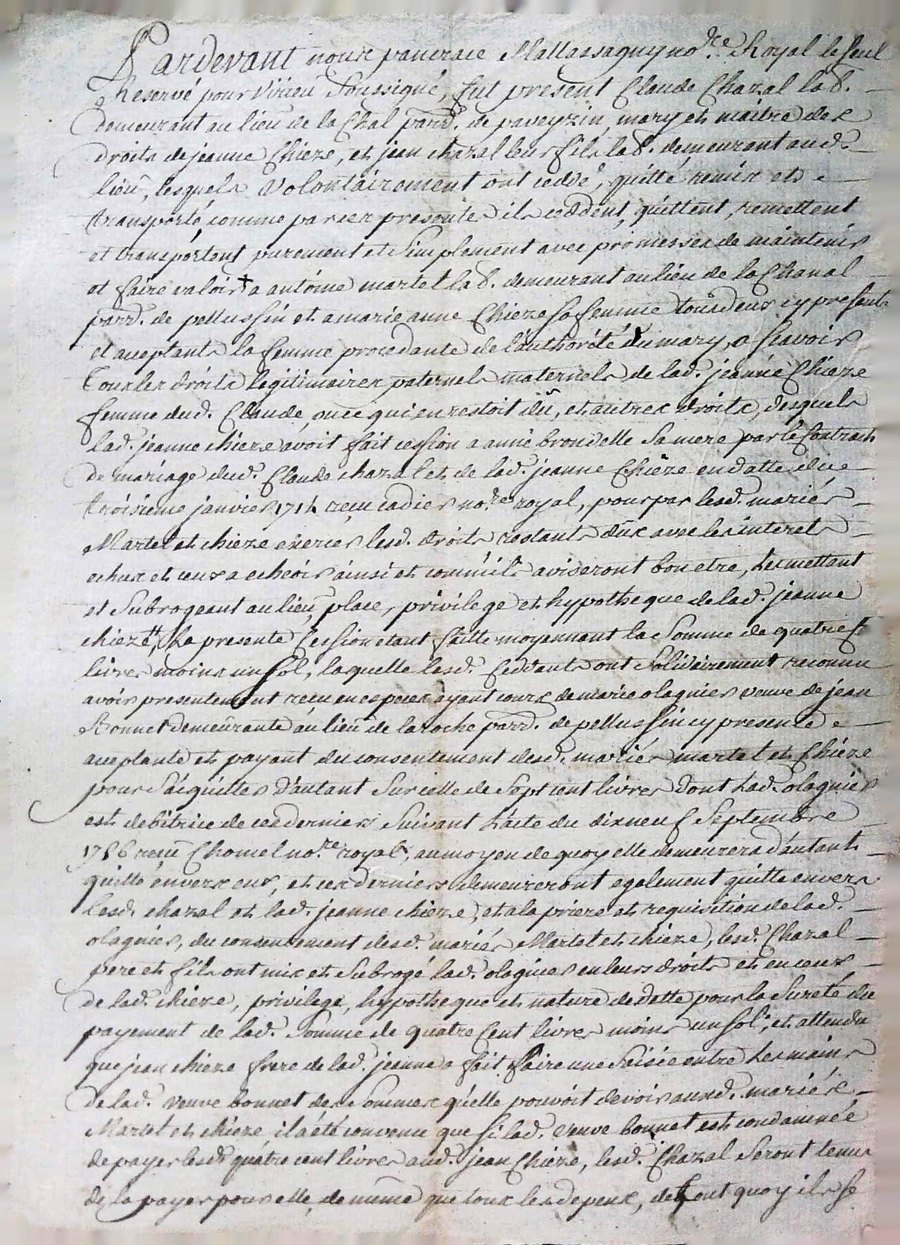 Pardevant nous pancrace Mattassaguy no.re Royal le seul
Reservé pour Virieu soussigné, fut present Claude Chazal lab.
demeurant au lieu de la Chal parr. de paveyzin, mary et maitre des
droits de jeanne Chieze, et jean chazal leur fils lab. demeurant aud.
lieu, lesquels volontairement ont cedé, quitté remis et
transporté comme par ces presentes ils coddent, quittent, remettent
et transportent purement et simplement avec promesses de maintenir
et faire valoir + a antoine martel lab. demeurant au lieu de la Chanal
parr. de pellussin et a marie anne Chieze sa femme tous deux cy presents
et acceptants la femme procedante de l'authorité du mary, a sçavoir
tous les droits legitimaires paternels maternels de lad. jeanne Chieze
femme dud. Claude, ou ce qui en restoit dû, et autres droits, desquels
lad. jeanne chieze avoit fait cession a anne brondelle sa mere par le contract
de mariage dud. Claude chazal et de lad. jeanne Chieze en datte du
troisieme janvier 1714 reçu cadier no.re royal, pour par lesd. mariés
Martel et chieze exercer lesd. droits restants dûs avec les interets
echus et ceux a echeoir ainsi et comm'ils aviseront bon etre, les mettent
et subrogeant au lieu, place, privilege et hypotheque de lad. jeanne
chieze, la presente Cession etant faitte moyennant la somme de quatre C.
livres moins un sol, laquelle lesd. Ceddants ont solidairement reconnu
avoir presentement reçu en especes ayant cours de marie olagnier veuve de jean
Bonnet demeurante au lieu de la roche parr. de pellussin cy presente
acceptante et payant du consentement desd. mariés martel et Chieze
pour s'aquitter d'autant sur celle de sept cent livres dont lad. olagnier
est debitrice de ces derniers suivant l'acte du dix neuf Septembre
1756 reçu Chomel no.re royal, au moyen de quoy elle demeurera d'autant
quitte envers eux, et ces derniers demeureront egalement quitte envers
lesd. chazal et lad. jeanne chieze, et a la priere et requisition de lad.
olagnier, du consentement desd. mariés Martel et chieze, lesd. Chazal
pere et fils ont mis et subrogé lad. olagnier en leurs droits et en ceux
de lad. chieze, privilege, hypotheque et nature de dette pour la sureté du
payement de lad. somme de quatre Cent livres moins un sol, et attendu
que jean chieze frere de lad. jeanne a fait faire une saisie entre les mains
de lad. veuve bonnet des sommes qu'elle pouvoit devoir auxd. mariés
Martel et chieze, il a été convenu que si lad. veuve bonnet est condamnée
de payer lesd. quatre cent livres aud. jean Chieze, lesd. Chazal seront tenus
de la payer pour elle, de même que tous les depens, de tout quoy ils se